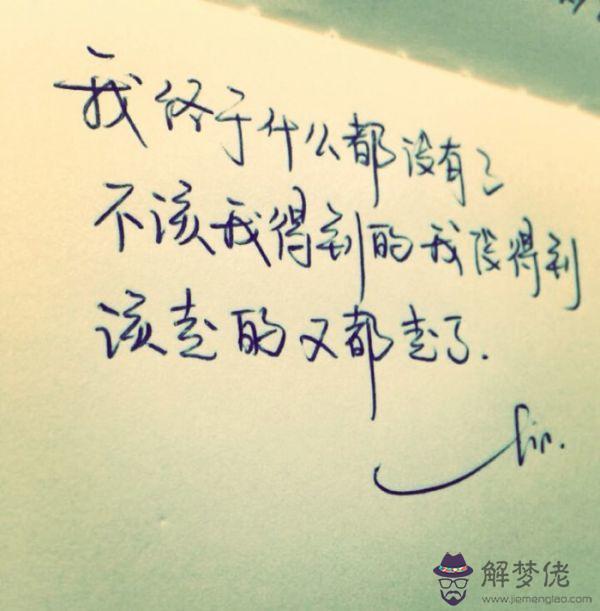 我终于什么都没有了
不该我得到的我没得到
该走的又都走了.
lin.
解梦佬
www.jiemenglao.com